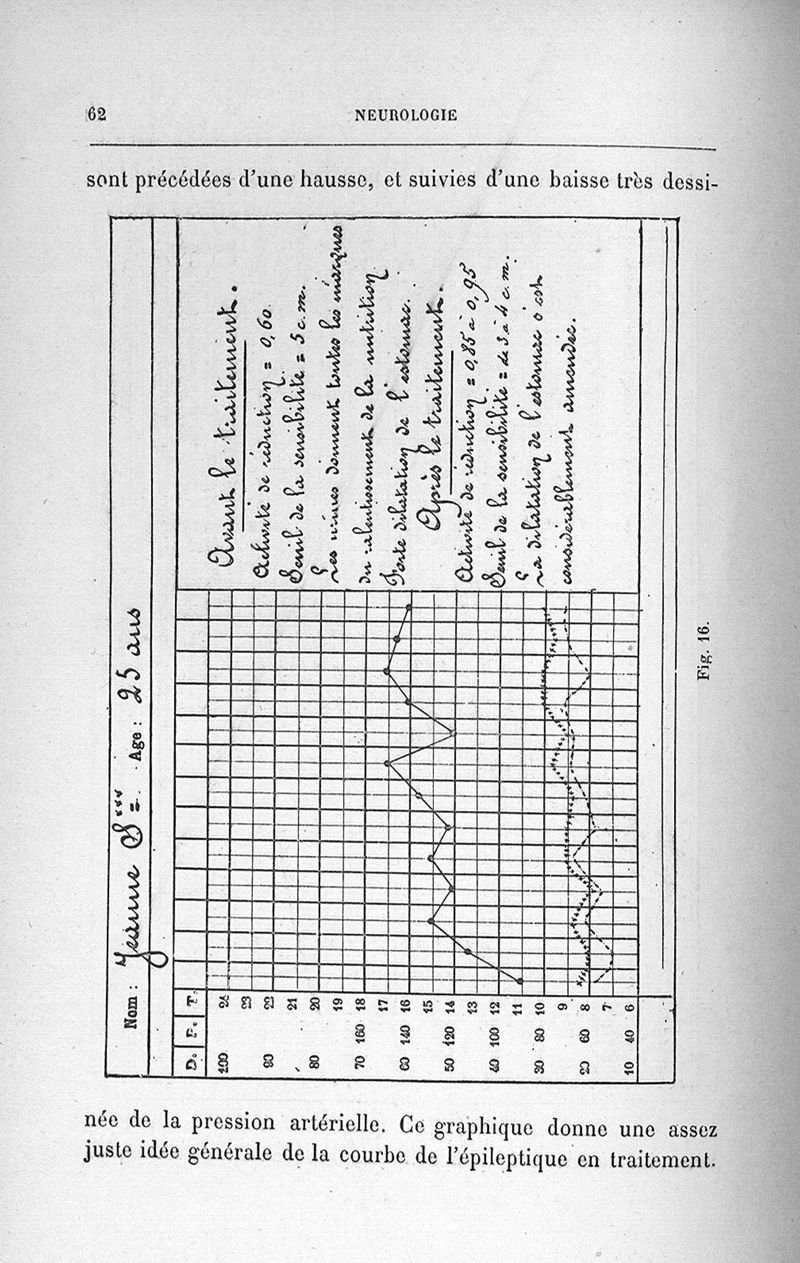 62
NEUROLOGIE
sont précédées d'une hausse, et suivies d'une baisse très dessi-
Nom : Jeanne S*** Age : 25 ans
Avant le traitement.
Activité de réduction = 0,60
Seuil de la sensibilité = 5 c.m.
Les urines donnent toutes les marques
du ralentissement de la nutrition
Forte dilatation de l'estomac.
Après le traitement.
Activité de réduction = 0,85 à 0,95
Seuil de la sensibilité = de 3 à 4 c.m.
La dilatation de l'estomac s'est
considérablement amendée.
D. P. T.
100 24
23
90 22
21
80 20
19
70 160 18
17
60 140 16
15
50 120 14
13
40 100 12
11
30 80 10
9
20 60 8
7
10 40 6
Fig. 16.
née de la pression artérielle. Ce graphique donne une assez
juste idée générale de la courbe de l'épileptique en traitement.